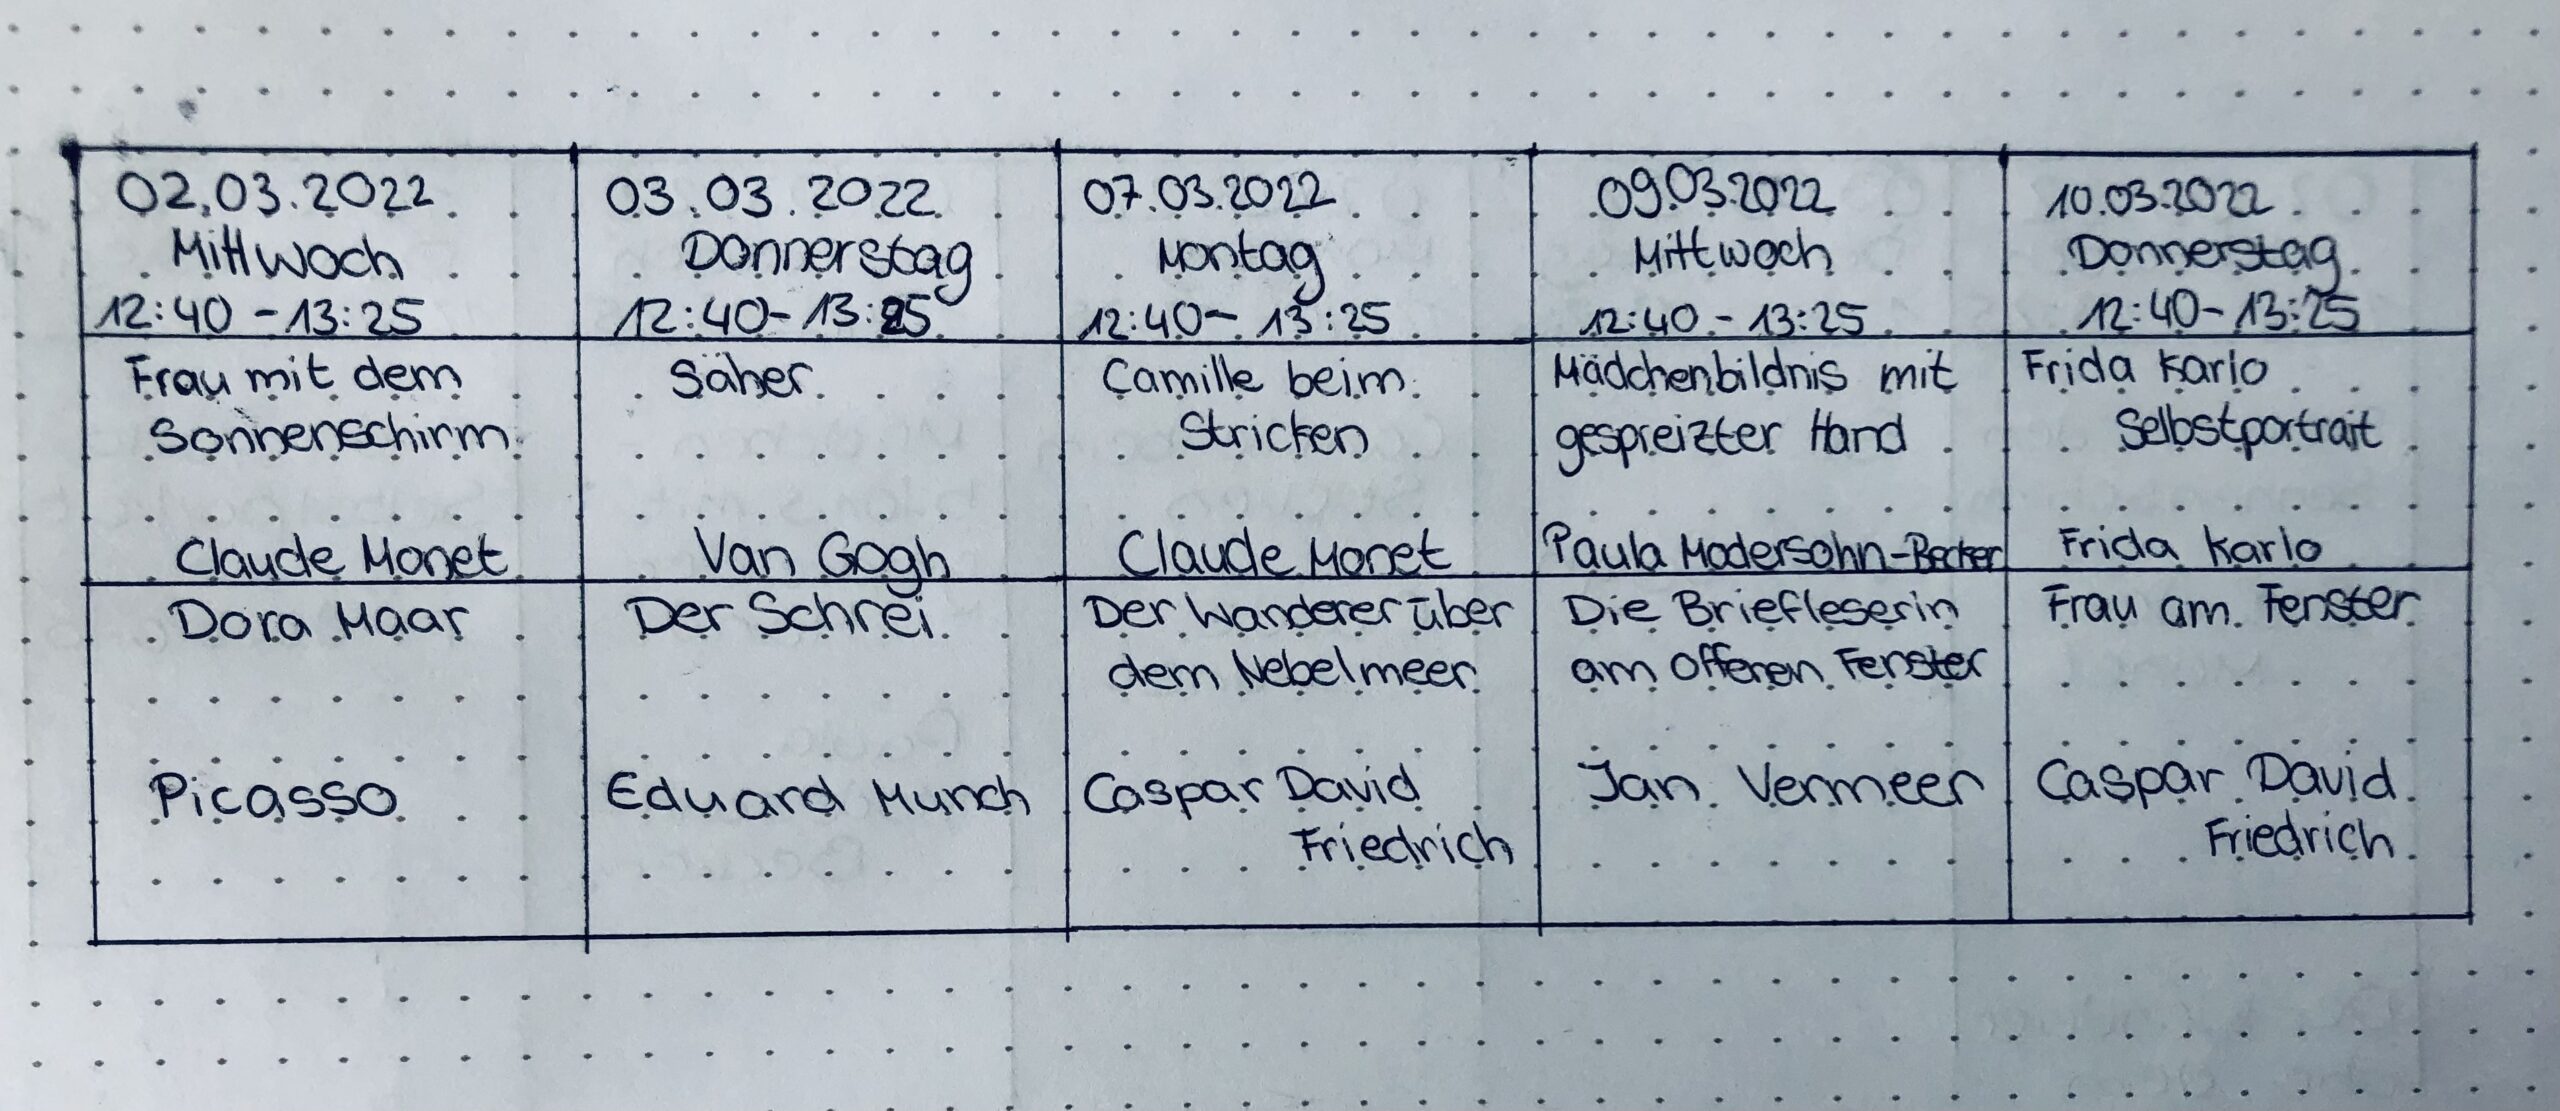 02.03.2022
Mittwoch
12:40 - 13:25
03.03.2022
Donnerstag
12:40 - 13:25
07.03.2022
Montag
12:40 - 13:25
09.03.2022
Mittwoch
12:40 - 13:25
10.03.2022
Donnerstag
12:40 - 13:25
Frau mit dem
Sonnenschirm
Claude Monet
Säher
Van Gogh
Camille beim
Stricken
Claude Monet
Mädchenbildnis mit
gespreizter Hand
Paula Modersohn-Becker
Frida Karlo
Selbstportrait
Frida Karlo
Dora Maar
Picasso
Der Schrei
Eduard Munch
Der Wanderer über
dem Nebelmeer
Caspar David
Friedrich
Die Briefleserin
am offenen Fenster
Jan Vermeer
Frau am Fenster
Caspar David
Friedrich